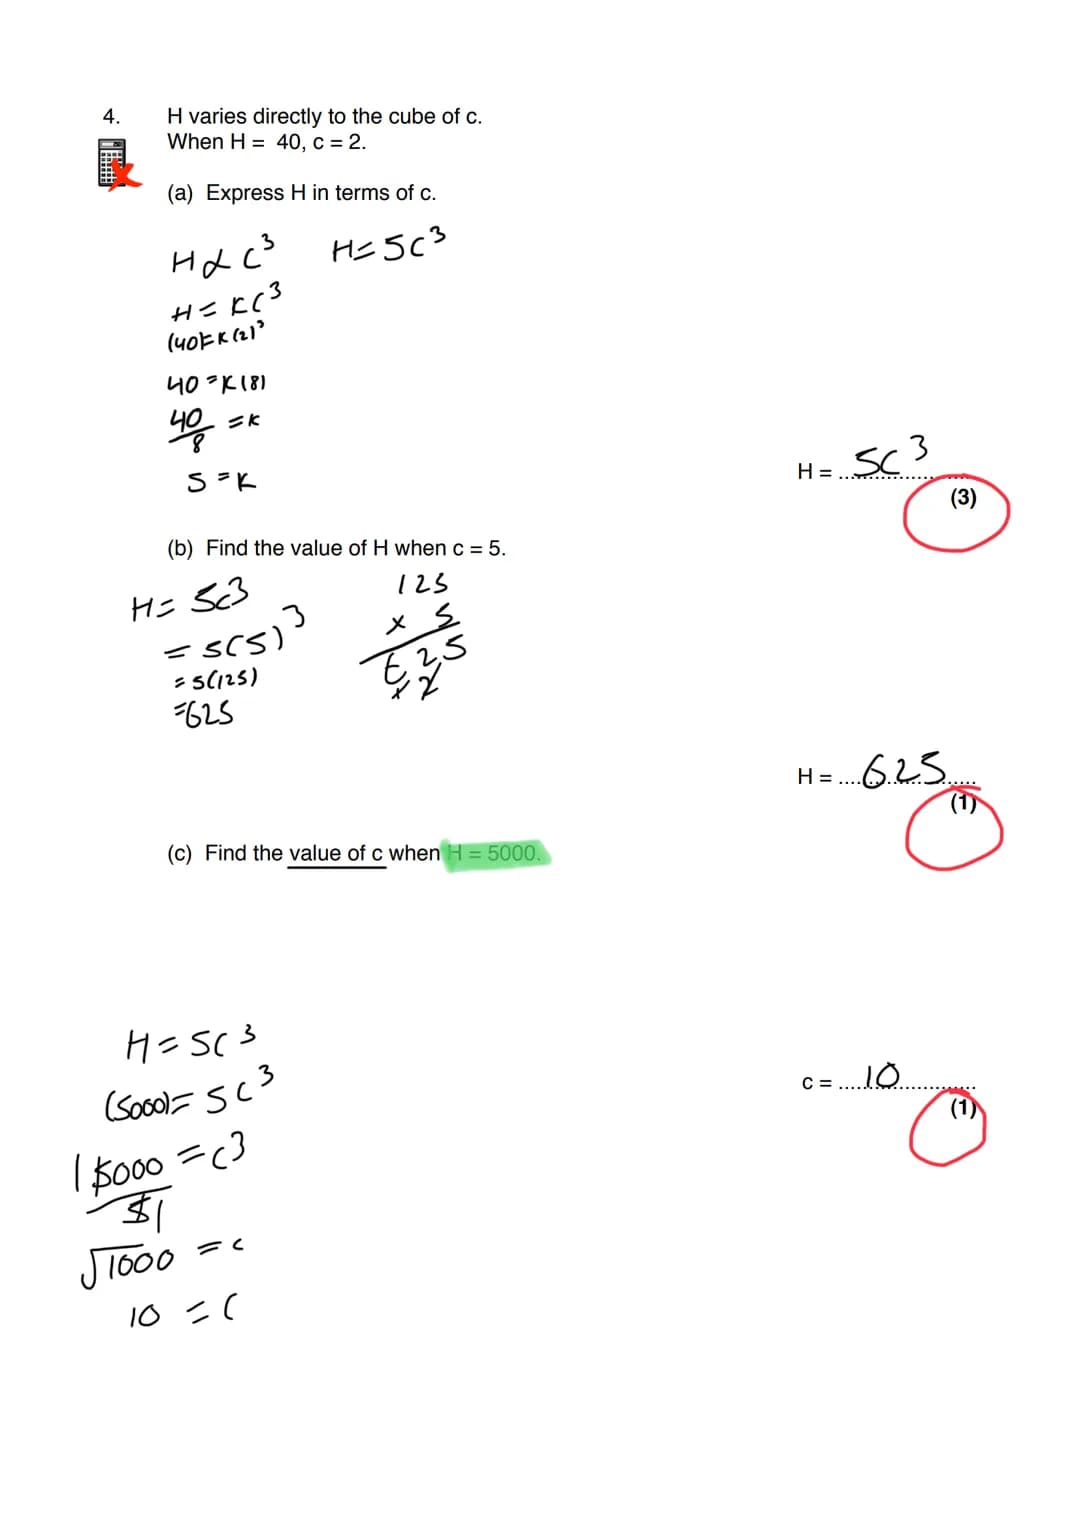 4. H varies directly to the cube of c.
When H = 40, c = 2.
(a) Express H in terms of c.
H ∝ c³ H = 5c³
H = Kc³
(40) = K(2)³
40 = K(8)
40/8 = K
5 = K
H = 5c³
(3)
(b) Find the value of H when c = 5.
H = 5c³
= 5(5)³
= 5(125)
= 625
125
× 5
625
H = 625
(1)
(c) Find the value of c when H = 5000.
H = 5c³
(5000) = 5c³
5000/5 = c³
√1000 = c
10 = c
c = 10
(1)